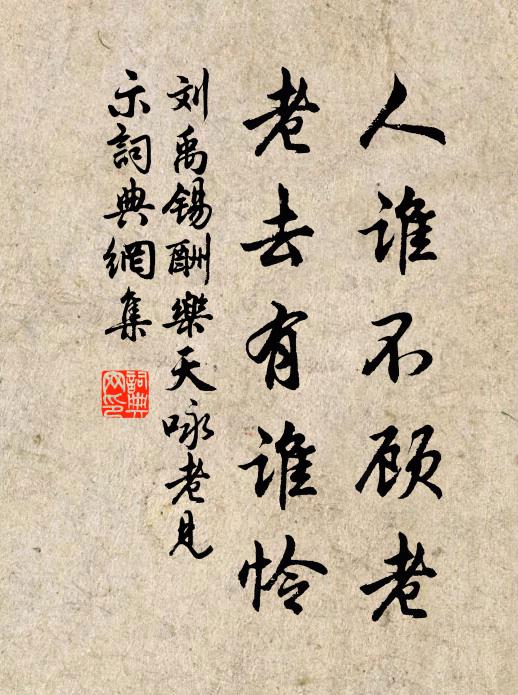 人谁不顾老
老去有谁怜
刘禹锡酬樂天咏老見
示詞典網集
詞典网印